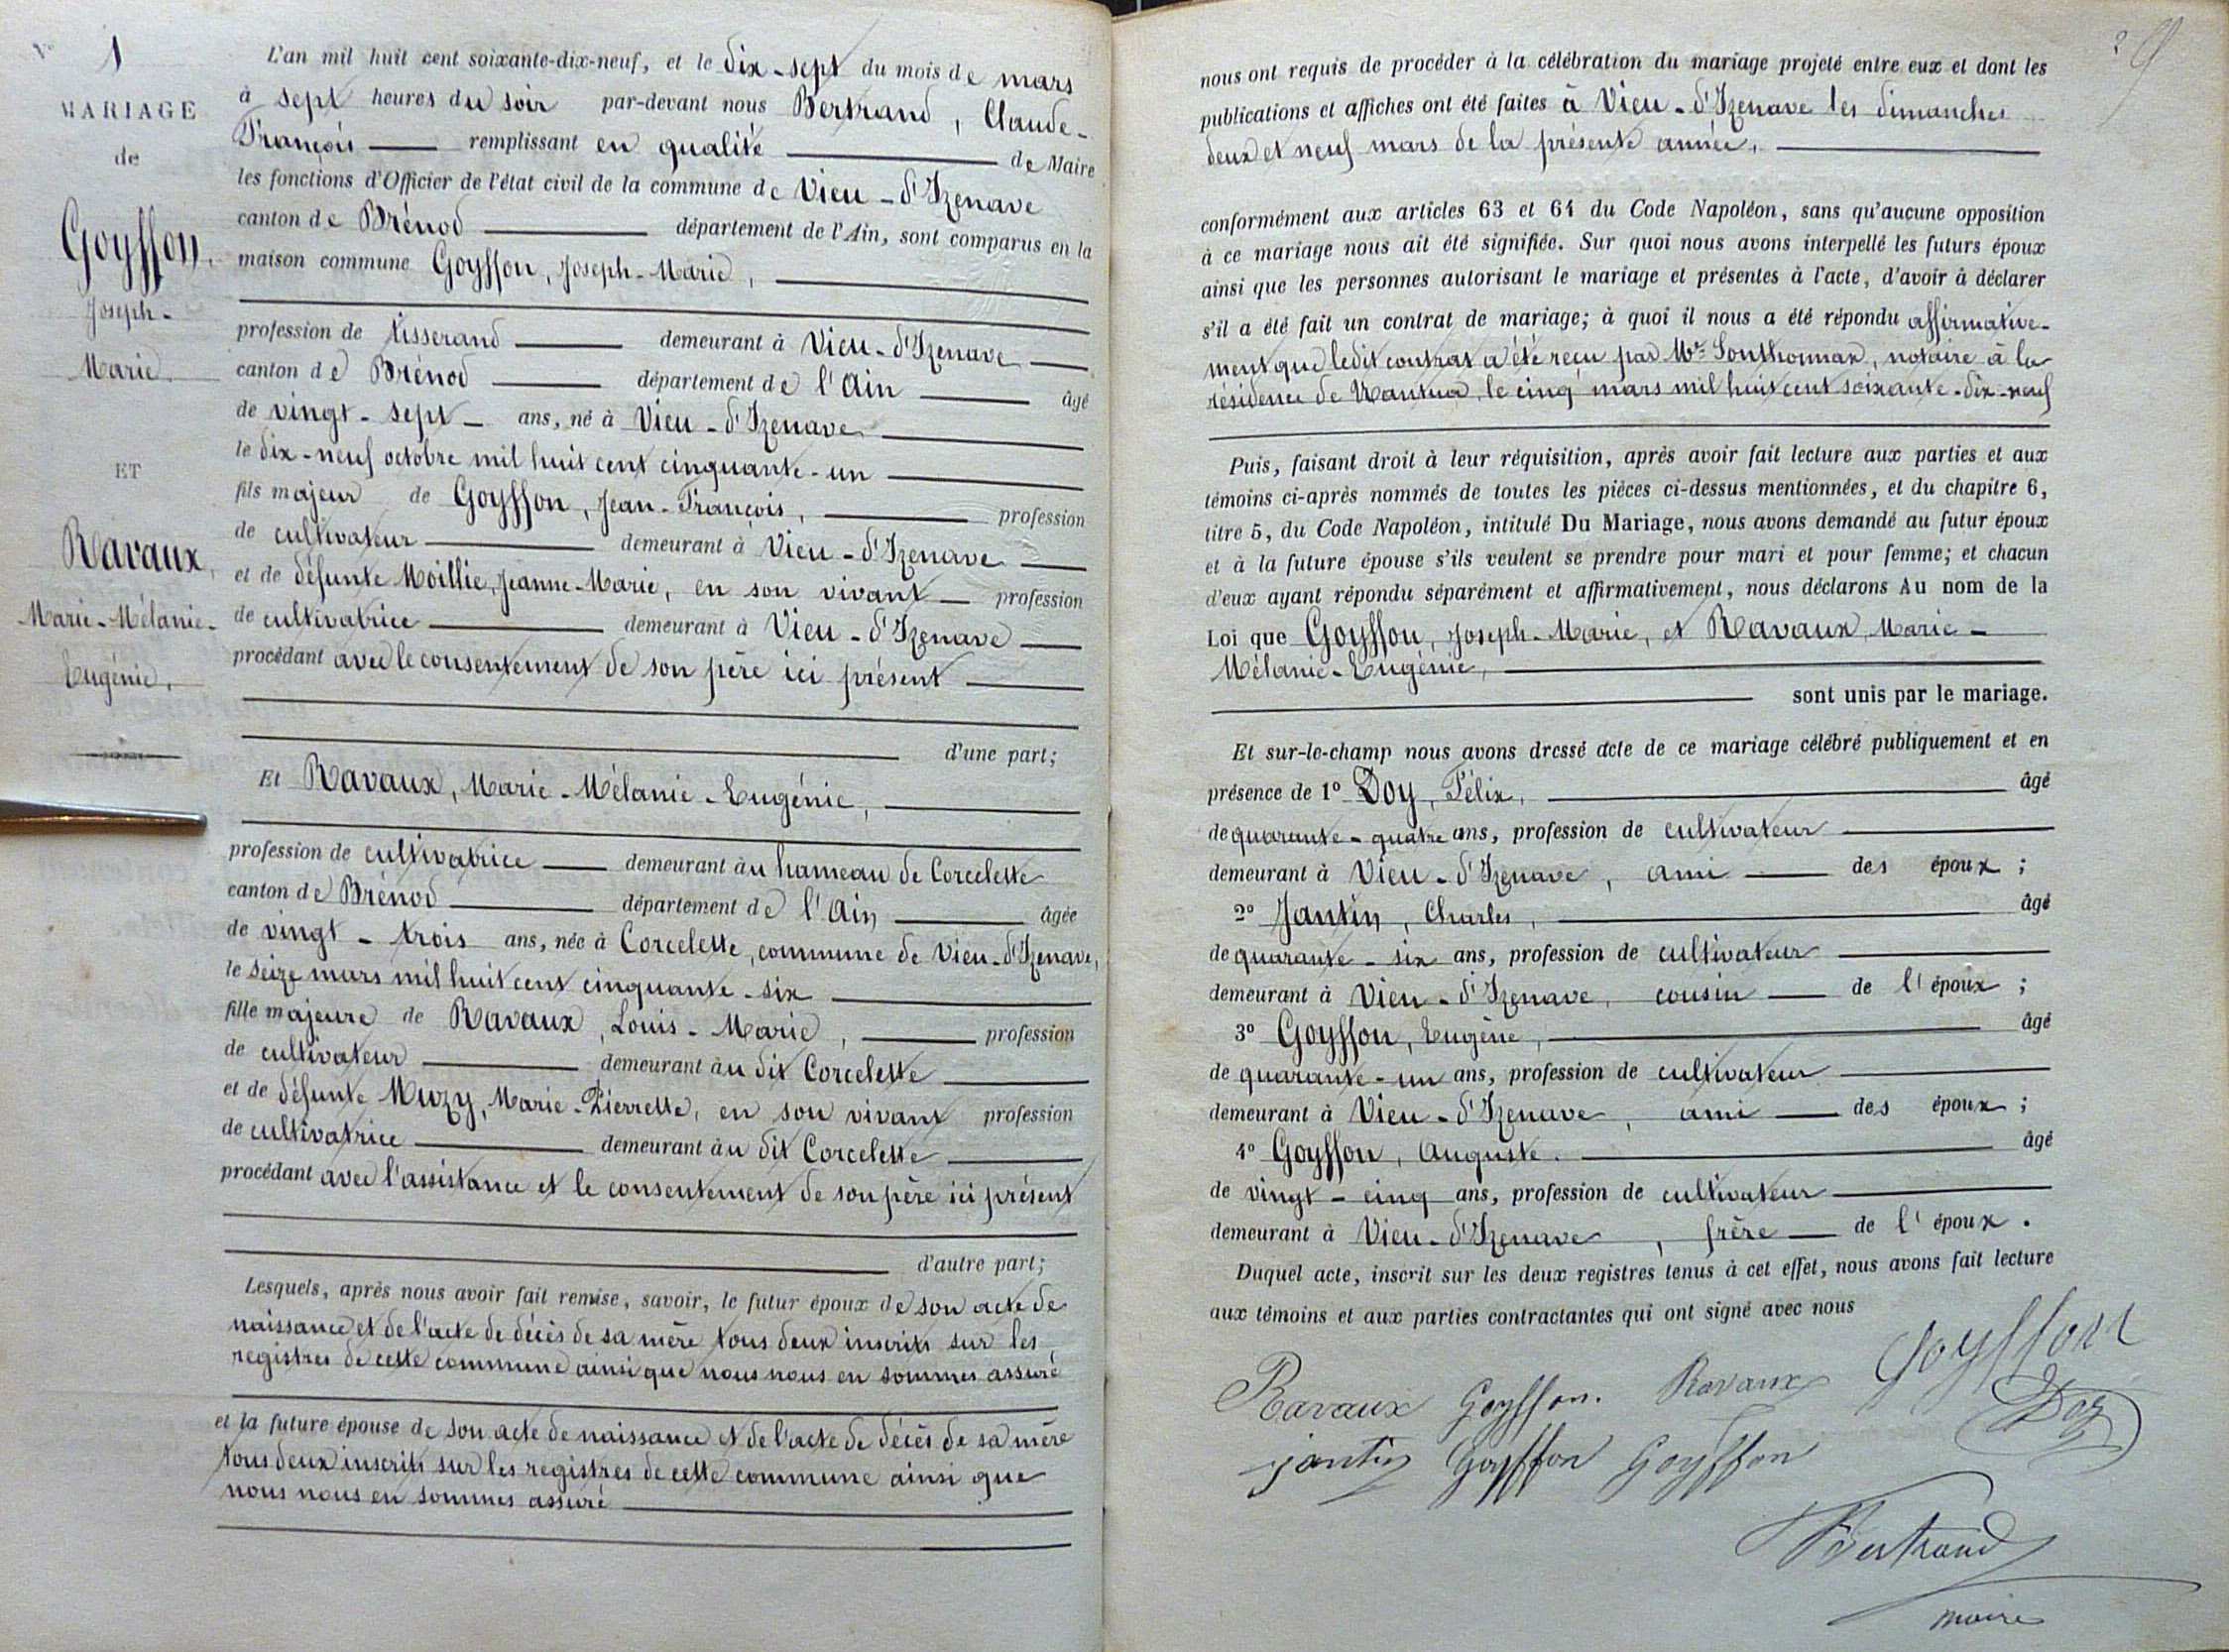 N° 1
MARIAGE
de
Goyffon,
Joseph-
Marie.
ET
Ravaux,
Marie-Mélanie-
Eugénie,
L'an mil huit cent soixante-dix-neuf, et le dix-sept du mois de mars
à sept heures du soir par-devant nous Bertrand, Claude-
François remplissant en qualité de Maire
les fonctions d'Officier de l'état civil de la commune de Vieu-d'Izenave
canton de Brénod département de l'Ain, sont comparus en la
maison commune Goyffon, Joseph-Marie,
profession de tisserand demeurant à Vieu-d'Izenave
canton de Brénod département de l'Ain âgé
de vingt-sept ans, né à Vieu-d'Izenave
le dix-neuf octobre mil huit cent cinquante-un
fils majeur de Goyffon, Jean-François, profession
de cultivateur demeurant à Vieu-d'Izenave
et de défunte Moillie, Jeanne-Marie, en son vivant profession
de cultivatrice demeurant à Vieu-d'Izenave
procédant avec le consentement de son père ici présent
d'une part;
Et Ravaux, Marie-Mélanie-Eugénie,
profession de cultivatrice demeurant au hameau de Corcelette
canton de Brénod département de l'Ain âgée
de vingt-trois ans, née à Corcelette, commune de Vieu-d'Izenave,
le seize mars mil huit cent cinquante-six
fille majeure de Ravaux, Louis-Marie, profession
de cultivateur demeurant au dit Corcelette
et de défunte Muzy, Marie-Pierrette, en son vivant profession
de cultivatrice demeurant au dit Corcelette
procédant avec l'assistance et le consentement de son père ici présent
d'autre part;
Lesquels, après nous avoir fait remise, savoir, le futur époux de son acte de
naissance et de l'acte de décès de sa mère tous deux inscrits sur les
registres de cette commune ainsi que nous nous en sommes assuré
et la future épouse de son acte de naissance et de l'acte de décès de sa mère
tous deux inscrits sur les registres de cette commune ainsi que
nous nous en sommes assuré
nous ont requis de procéder à la célébration du mariage projeté entre eux et dont les
publications et affiches ont été faites à Vieu-d'Izenave les dimanches
deux et neuf mars de la présente année,
conformément aux articles 63 et 64 du Code Napoléon, sans qu'aucune opposition
à ce mariage nous ait été signifiée. Sur quoi nous avons interpellé les futurs époux
ainsi que les personnes autorisant le mariage et présentes à l'acte, d'avoir à déclarer
s'il a été fait un contrat de mariage; à quoi il nous a été répondu affirmative-
ment que ledit contrat a été reçu par Me Sonthonnax, notaire à la
résidence de Nantua, le cinq mars mil huit cent soixante-dix-neuf
Puis, faisant droit à leur réquisition, après avoir fait lecture aux parties et aux
témoins ci-après nommés de toutes les pièces ci-dessus mentionnées, et du chapitre 6,
titre 5, du Code Napoléon, intitulé Du Mariage, nous avons demandé au futur époux
et à la future épouse s'ils veulent se prendre pour mari et pour femme; et chacun
d'eux ayant répondu séparément et affirmativement, nous déclarons Au nom de la
Loi que Goyffon, Joseph-Marie, et Ravaux, Marie-
Mélanie-Eugénie,
sont unis par le mariage.
Et sur-le-champ nous avons dressé acte de ce mariage célébré publiquement et en
présence de 1° Doy, Félix, âgé
de quarante-quatre ans, profession de cultivateur
demeurant à Vieu-d'Izenave, ami des époux;
2° Jantin, Charles, âgé
de quarante-six ans, profession de cultivateur
demeurant à Vieu-d'Izenave, cousin de l'époux;
3° Goyffon, Eugène, âgé
de quarante-un ans, profession de cultivateur
demeurant à Vieu-d'Izenave, ami des époux;
4° Goyffon, Auguste. âgé
de vingt-cinq ans, profession de cultivateur
demeurant à Vieu-d'Izenave, frère de l'époux.
Duquel acte, inscrit sur les deux registres tenus à cet effet, nous avons fait lecture
aux témoins et aux parties contractantes qui ont signé avec nous
Ravaux Goyffon. Ravaux Goyffon
Doy
jantin Goyffon Goyffon
Bertrand
maire